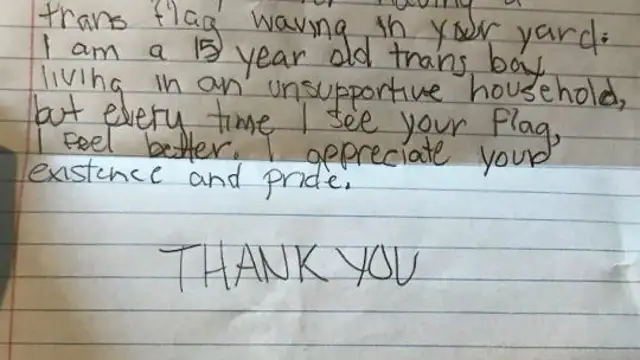 trans flag waving in your yard.
I am a 15 year old trans boy
living in an unsupportive household,
but every time I see your flag,
I feel better. I appreciate your
existence and pride.
THANK YOU